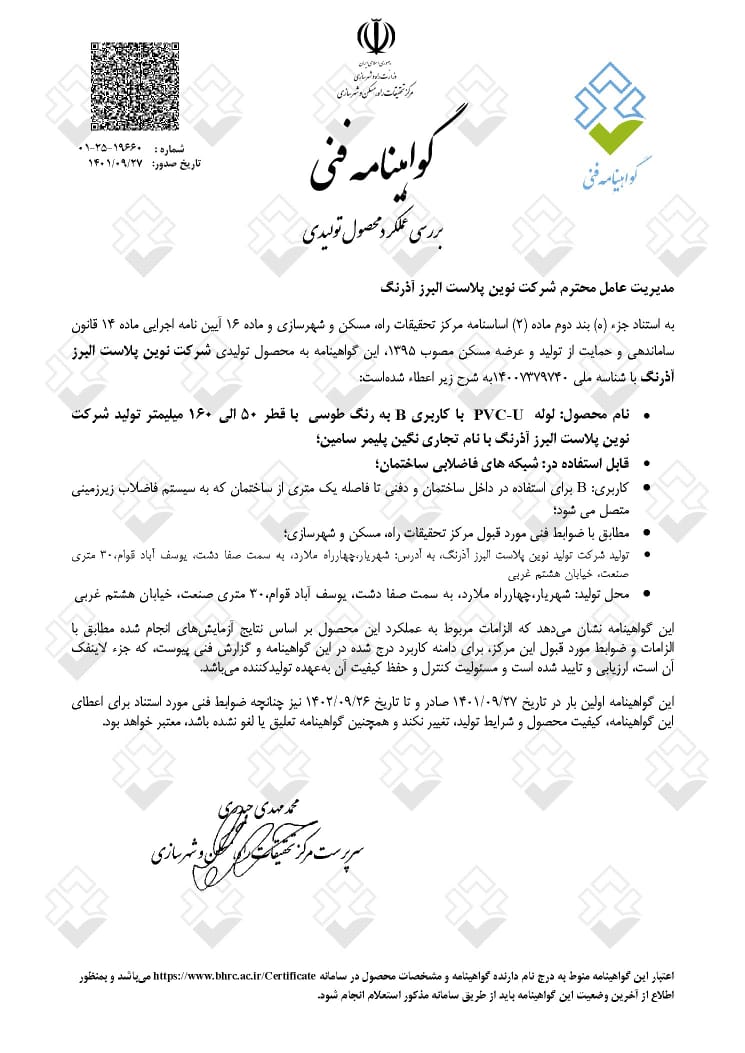 جمهوری اسلامی ایران
وزارت راه و شهرسازی
مرکز تحقیقات راه، مسکن و شهرسازی
گواهینامه فنی
بررسی عملکرد محصول تولیدی
گواهینامه فنی
شماره : ۱۹۶۶۰-۲۵-۰۱
تاریخ صدور: ۱۴۰۱/۰۹/۲۷
مدیریت عامل محترم شرکت نوین پلاست البرز آذرنگ
به استناد جزء (ه) بند دوم ماده (۲) اساسنامه مرکز تحقیقات راه، مسکن و شهرسازی و ماده ۱۶ آیین نامه اجرایی ماده ۱۴ قانون
ساماندهی و حمایت از تولید و عرضه مسکن مصوب ۱۳۹۵، این گواهینامه به محصول تولیدی شرکت نوین پلاست البرز
آذرنگ با شناسه ملی ۱۴۰۰۷۳۷۹۷۴۰به شرح زیر اعطاء شده‌است:
• نام محصول: لوله PVC-U با کاربری B به رنگ طوسی با قطر ۵۰ الی ۱۶۰ میلیمتر تولید شرکت
نوین پلاست البرز آذرنگ با نام تجاری نگین پلیمر سامین؛
• قابل استفاده در: شبکه های فاضلابی ساختمان؛
• کاربری: B برای استفاده در داخل ساختمان و دفنی تا فاصله یک متری از ساختمان که به سیستم فاضلاب زیرزمینی
متصل می شود؛
• مطابق با ضوابط فنی مورد قبول مرکز تحقیقات راه، مسکن و شهرسازی؛
• تولید شرکت تولید نوین پلاست البرز آذرنگ، به آدرس: شهریار،چهارراه ملارد، به سمت صفا دشت، یوسف آباد قوام،۳۰ متری
صنعت، خیابان هشتم غربی
• محل تولید: شهریار،چهارراه ملارد، به سمت صفا دشت، یوسف آباد قوام،۳۰ متری صنعت، خیابان هشتم غربی
این گواهینامه نشان می‌دهد که الزامات مربوط به عملکرد این محصول بر اساس نتایج آزمایش‌های انجام شده مطابق با
الزامات و ضوابط مورد قبول این مرکز، برای دامنه کاربرد درج شده در این گواهینامه و گزارش فنی پیوست، که جزء لاینفک
آن است، ارزیابی و تایید شده است و مسئولیت کنترل و حفظ کیفیت آن به‌عهده تولیدکننده می‌باشد.
این گواهینامه اولین بار در تاریخ ۱۴۰۱/۰۹/۲۷ صادر و تا تاریخ ۱۴۰۲/۰۹/۲۶ نیز چنانچه ضوابط فنی مورد استناد برای اعطای
این گواهینامه، کیفیت محصول و شرایط تولید، تغییر نکند و همچنین گواهینامه تعلیق یا لغو نشده باشد، معتبر خواهد بود.
محمد مهدی حیدری
سرپرست مرکز تحقیقات راه، مسکن و شهرسازی
اعتبار این گواهینامه منوط به درج نام دارنده گواهینامه و مشخصات محصول در سامانه https://www.bhrc.ac.ir/Certificate می‌باشد و بمنظور
اطلاع از آخرین وضعیت این گواهینامه باید از طریق سامانه مذکور استعلام انجام شود.